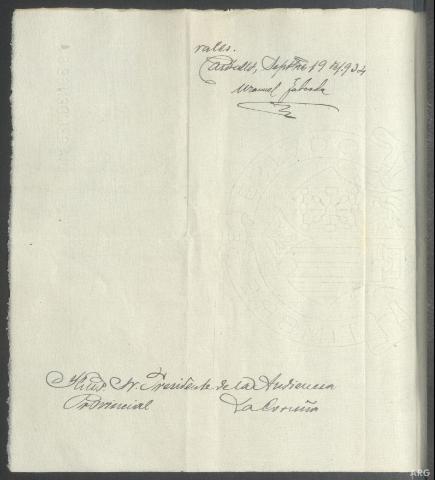 rales.
Carballo, Septbre 19 de 1934
Manuel Taboada
Ilmo. Sr. Presidente de la Audiencia
Provincial La Coruña
ARG